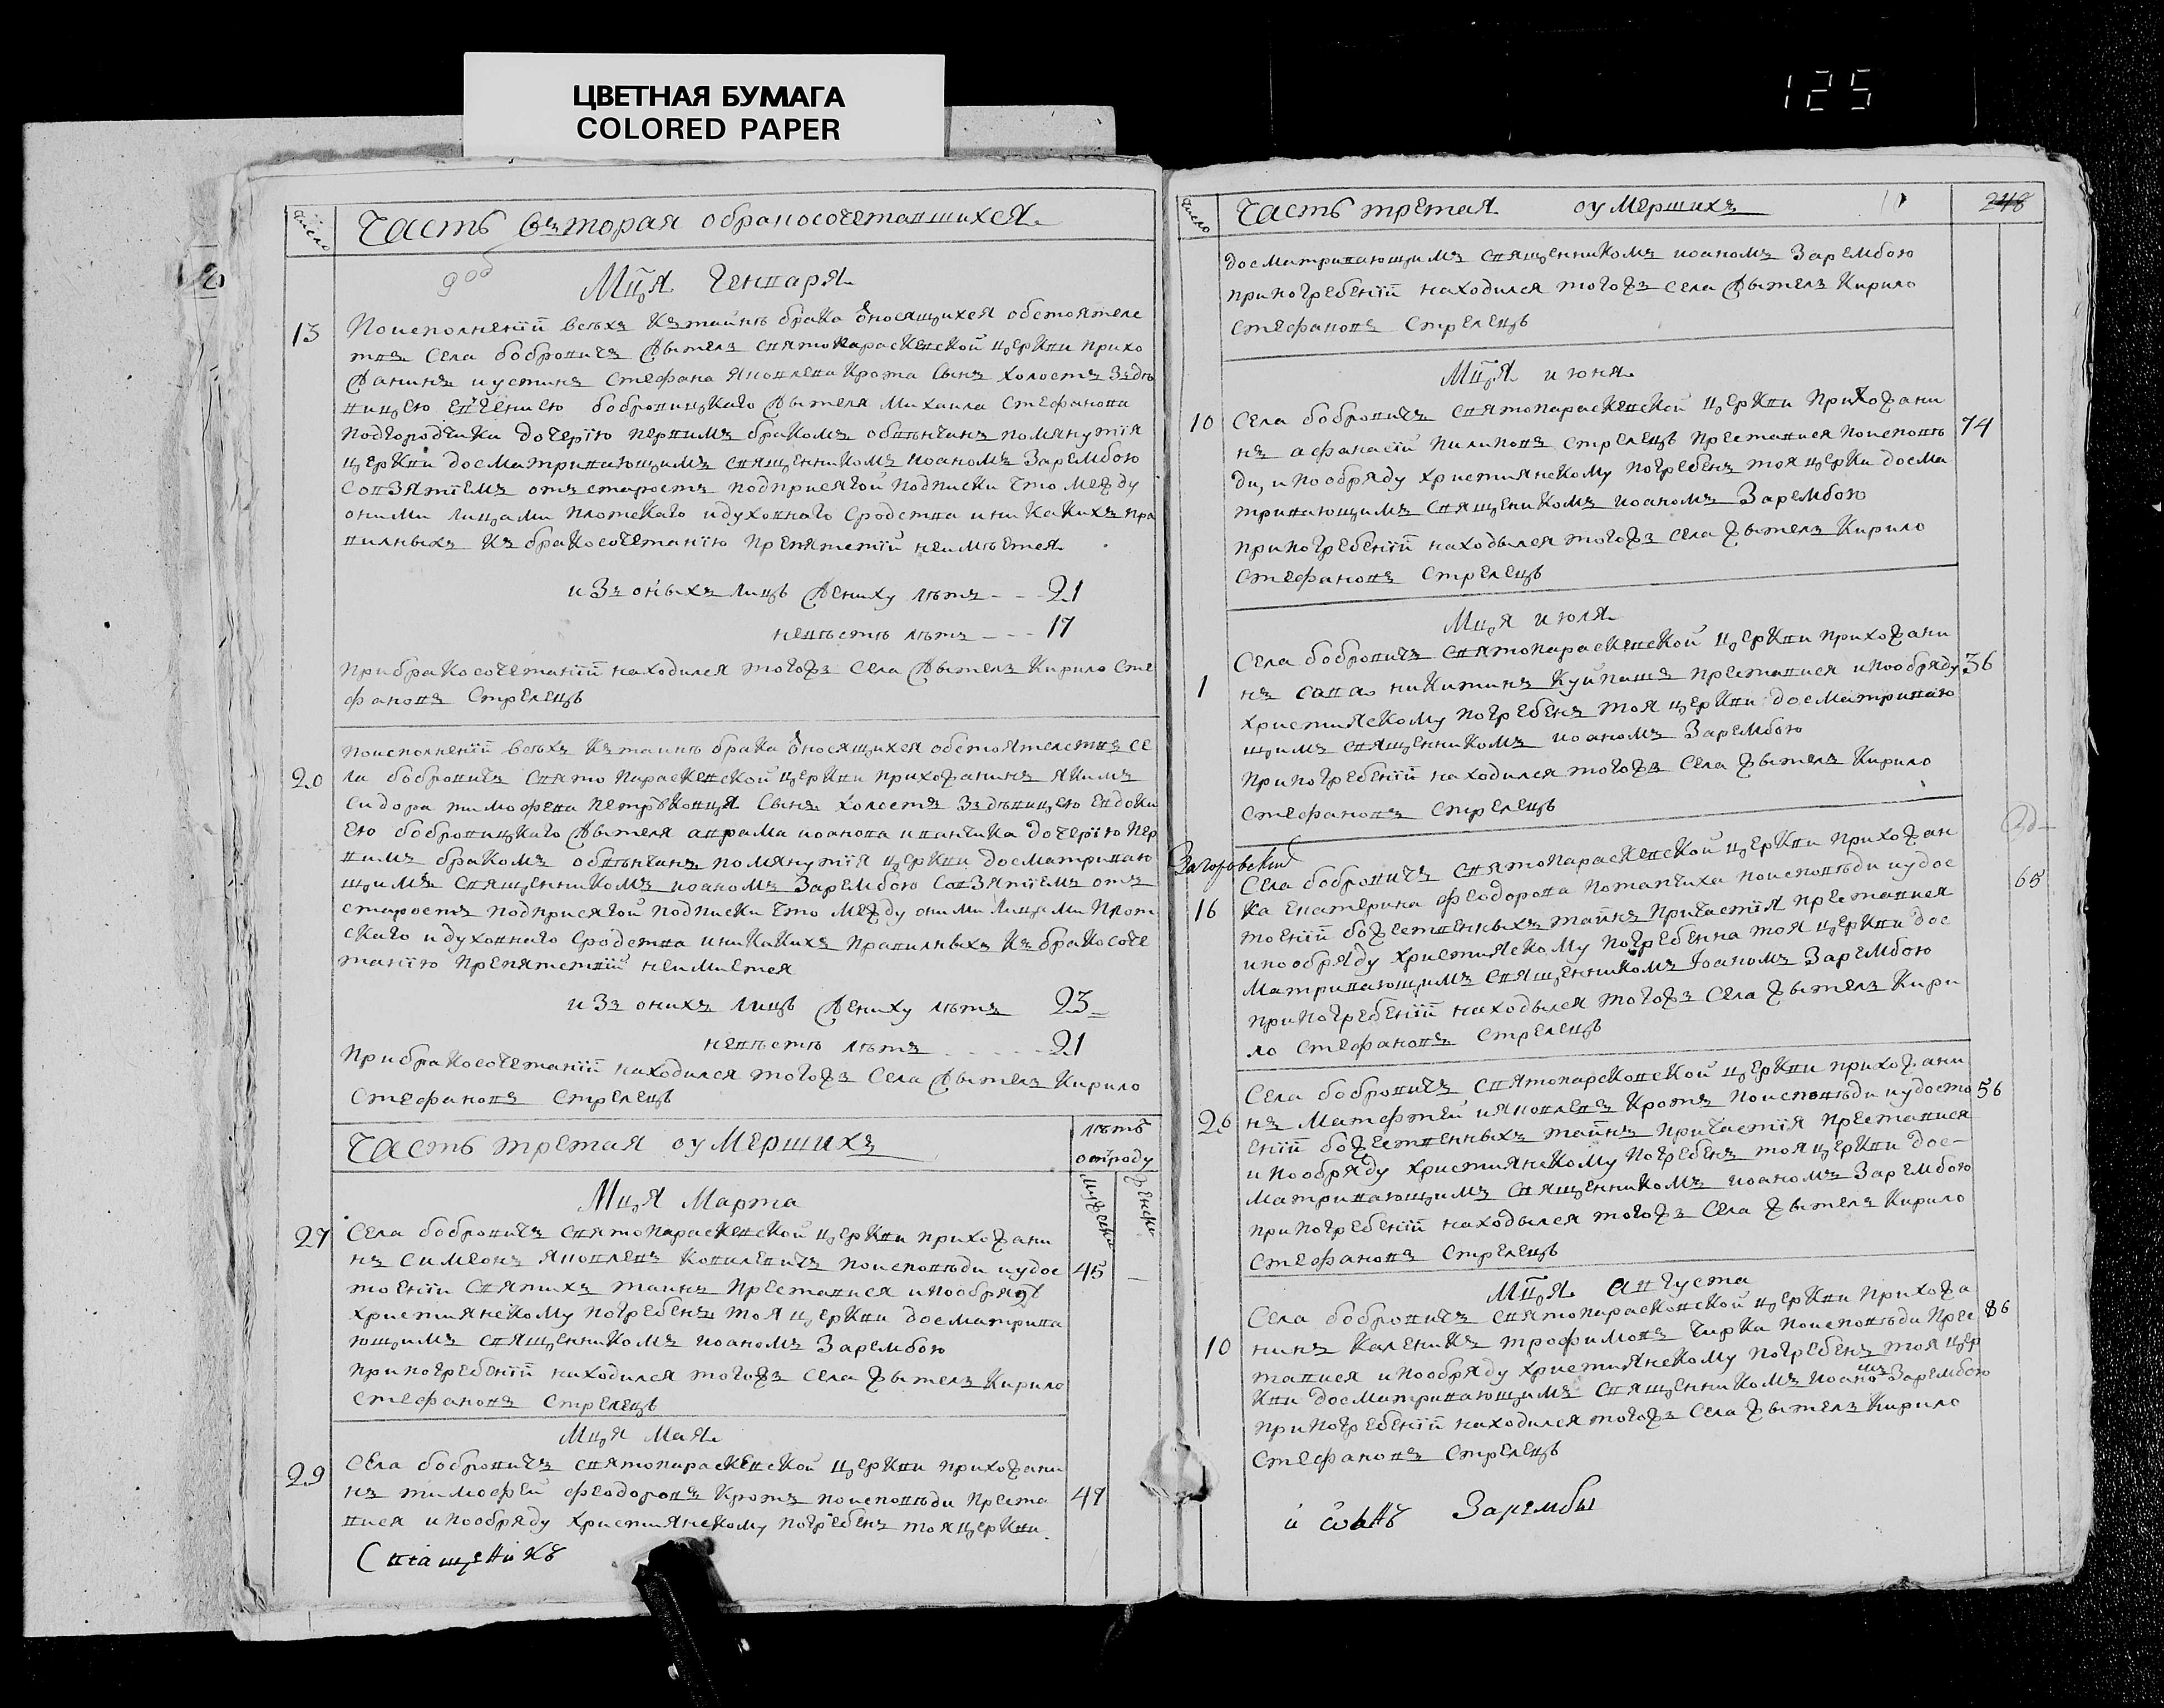 ЦВЕТНАЯ БУМАГА
COLORED PAPER
125
число
Часть вторая обракосочетавшихся
Мц҃а Генваря
13
Поисполнениӣ всѣхъ Кътайнѣ брака ѿносящихся обстоятелс
твъ Села бобровичъ Жытель святопараскевской церкви прихо
жанинъ иустинъ Стефана Яковлева Крота Сынъ холостъ Здѣ
вицею Евгениею бобровицкаго Жытеля Михаила Стефанова
Подгородчики дочерїю первимъ бракомъ обвѣнчанъ помянутїя
церкви досматривающимъ священникомъ иоаномъ Зарембою
Совзятїемъ отъ старостъ подприсягой подписки что между
оними лицами плотскаго идуховнаго Сродства иникакихъ пра
вилныхъ къ бракосочетанїю препятствїй неимѣется
изъ оныхъ лицъ Жениху лѣтъ - - - 21
невѣстѣ лѣтъ - - - 17
Прибракосочетанїй находился тогожъ Села Жытель Кирило Сте
фановъ Стрелецъ
20
поисполненїй всѣхъ Кътаинѣ брака ѿносящихся обстоятелствъ се
ла бобровичъ Свято Параскевской церкви прихожанинъ якимъ
Сидора тимофеева Петровця Сынъ холостъ Здѣвицею Евдоки
ею бобровицкаго Жытеля аврама иоанова иванчика дочерїю пер
вимъ бракомъ обвѣнчанъ помянутїя церкви досматриваю
щимъ священникомъ иоаномъ Зарембою Совзятїемъ отъ
старостъ подприсягой подписки что между оними лицами плот
скаго идуховнаго Сродства иникакихъ правилныхъ къ бракосоче
танїю препятствїй неимиется
изъ онихъ лицъ Жениху лѣтъ 23
невѣстѣ лѣтъ - - - 21
Прибракосочетанїй находился тогожъ Села Жытель Кирило
Стефановъ Стрелецъ
Часть третая оумершихъ
лѣтъ отроду
мужески женски
Мц҃а Марта
27
Села бобровичъ святопараскевской церкви прихожани
нъ Симеонъ яковлевъ Копилевичъ поисповѣди иудос
тоенїи святихъ таинъ преставися ипообряду
християнскому погребенъ тоя церкви досматрива
ющимъ священникомъ иоаномъ Зарембою
45
припогребенїй находился тогожъ села жытель Кирило
Стефановъ Стрелецъ
Мц҃а Мая
29
Села бобровичъ святопараскевской церкви прихожани
нъ тимофей феодоровъ Кротъ поисповѣди преста
47
вися ипообряду християнскому погребенъ тояцеркви
Священикъ
число
Часть третая оумершихъ
248
досматривающимъ священникомъ иоаномъ Зарембою
припогребенїй находился тогожъ села жытель Кирило
Стефановъ Стрелецъ
Мц҃а июня
10
Села бобровичъ святопараскевской церкви прихожани
нъ афанасїй пилиповъ Стрелецъ преставися поисповѣ
74
ди, ипообряду християнскому погребенъ тоя церкви досма
тривающимъ священикомъ иоаномъ Зарембою
припогребенїй находылся тогожъ села жытель Кирило
Стефановъ Стрелецъ
Мц҃я июля
1
Села бобровичъ святопараскевской церкви прихожани
нъ сава никитинъ Куйпашъ преставися ипообряду
36
християскому погребенъ тоя церкви досматриваю
щимъ священникомъ иоаномъ Зарембою
припогребенїй находился тогожъ Села жытель Кирило
Стефановъ Стрелецъ
Загоровский
16
Села бобровичъ святопараскевской церкви прихожан
ка Екатерина феодорова Потапчиха поисповѣди иудос
65
тоенїй божественныхъ тайнъ причастїя преставися
ипообряду християскому погребенна тоя церкви дос
матривающимъ священникомъ Іоаномъ Зарембою
припогребенїй находылся тогожъ Села жытель Кири
ло Стефановъ Стрелецъ
26
Села бобровичъ святопарсковской церкви прихожани
нъ Матфтей ияковлевъ Кротъ поисповѣди иудосто
56
енїй божественныхъ тайнъ причастїя преставися
и пообряду християнскому погребенъ тоя церкви дос-
матривающимъ священникомъ иоаномъ Зарембою
припогребенїй находылся тогожъ Села жытель Кирило
Стефановъ Стрелецъ
Мц҃я августа
10
Села бобровичъ святопарасковской церкви прихожа
нинъ Каленикъ трофимовъ Чирка поисповѣди прес
86
тавися ипообряду християнскому погребенъ тоя цер
кви досматривающимъ священникомъ иоаномъ Зарембою
припогребенїй находился тогожъ Села жытель Кирило
Стефановъ Стрелецъ
Зарембы